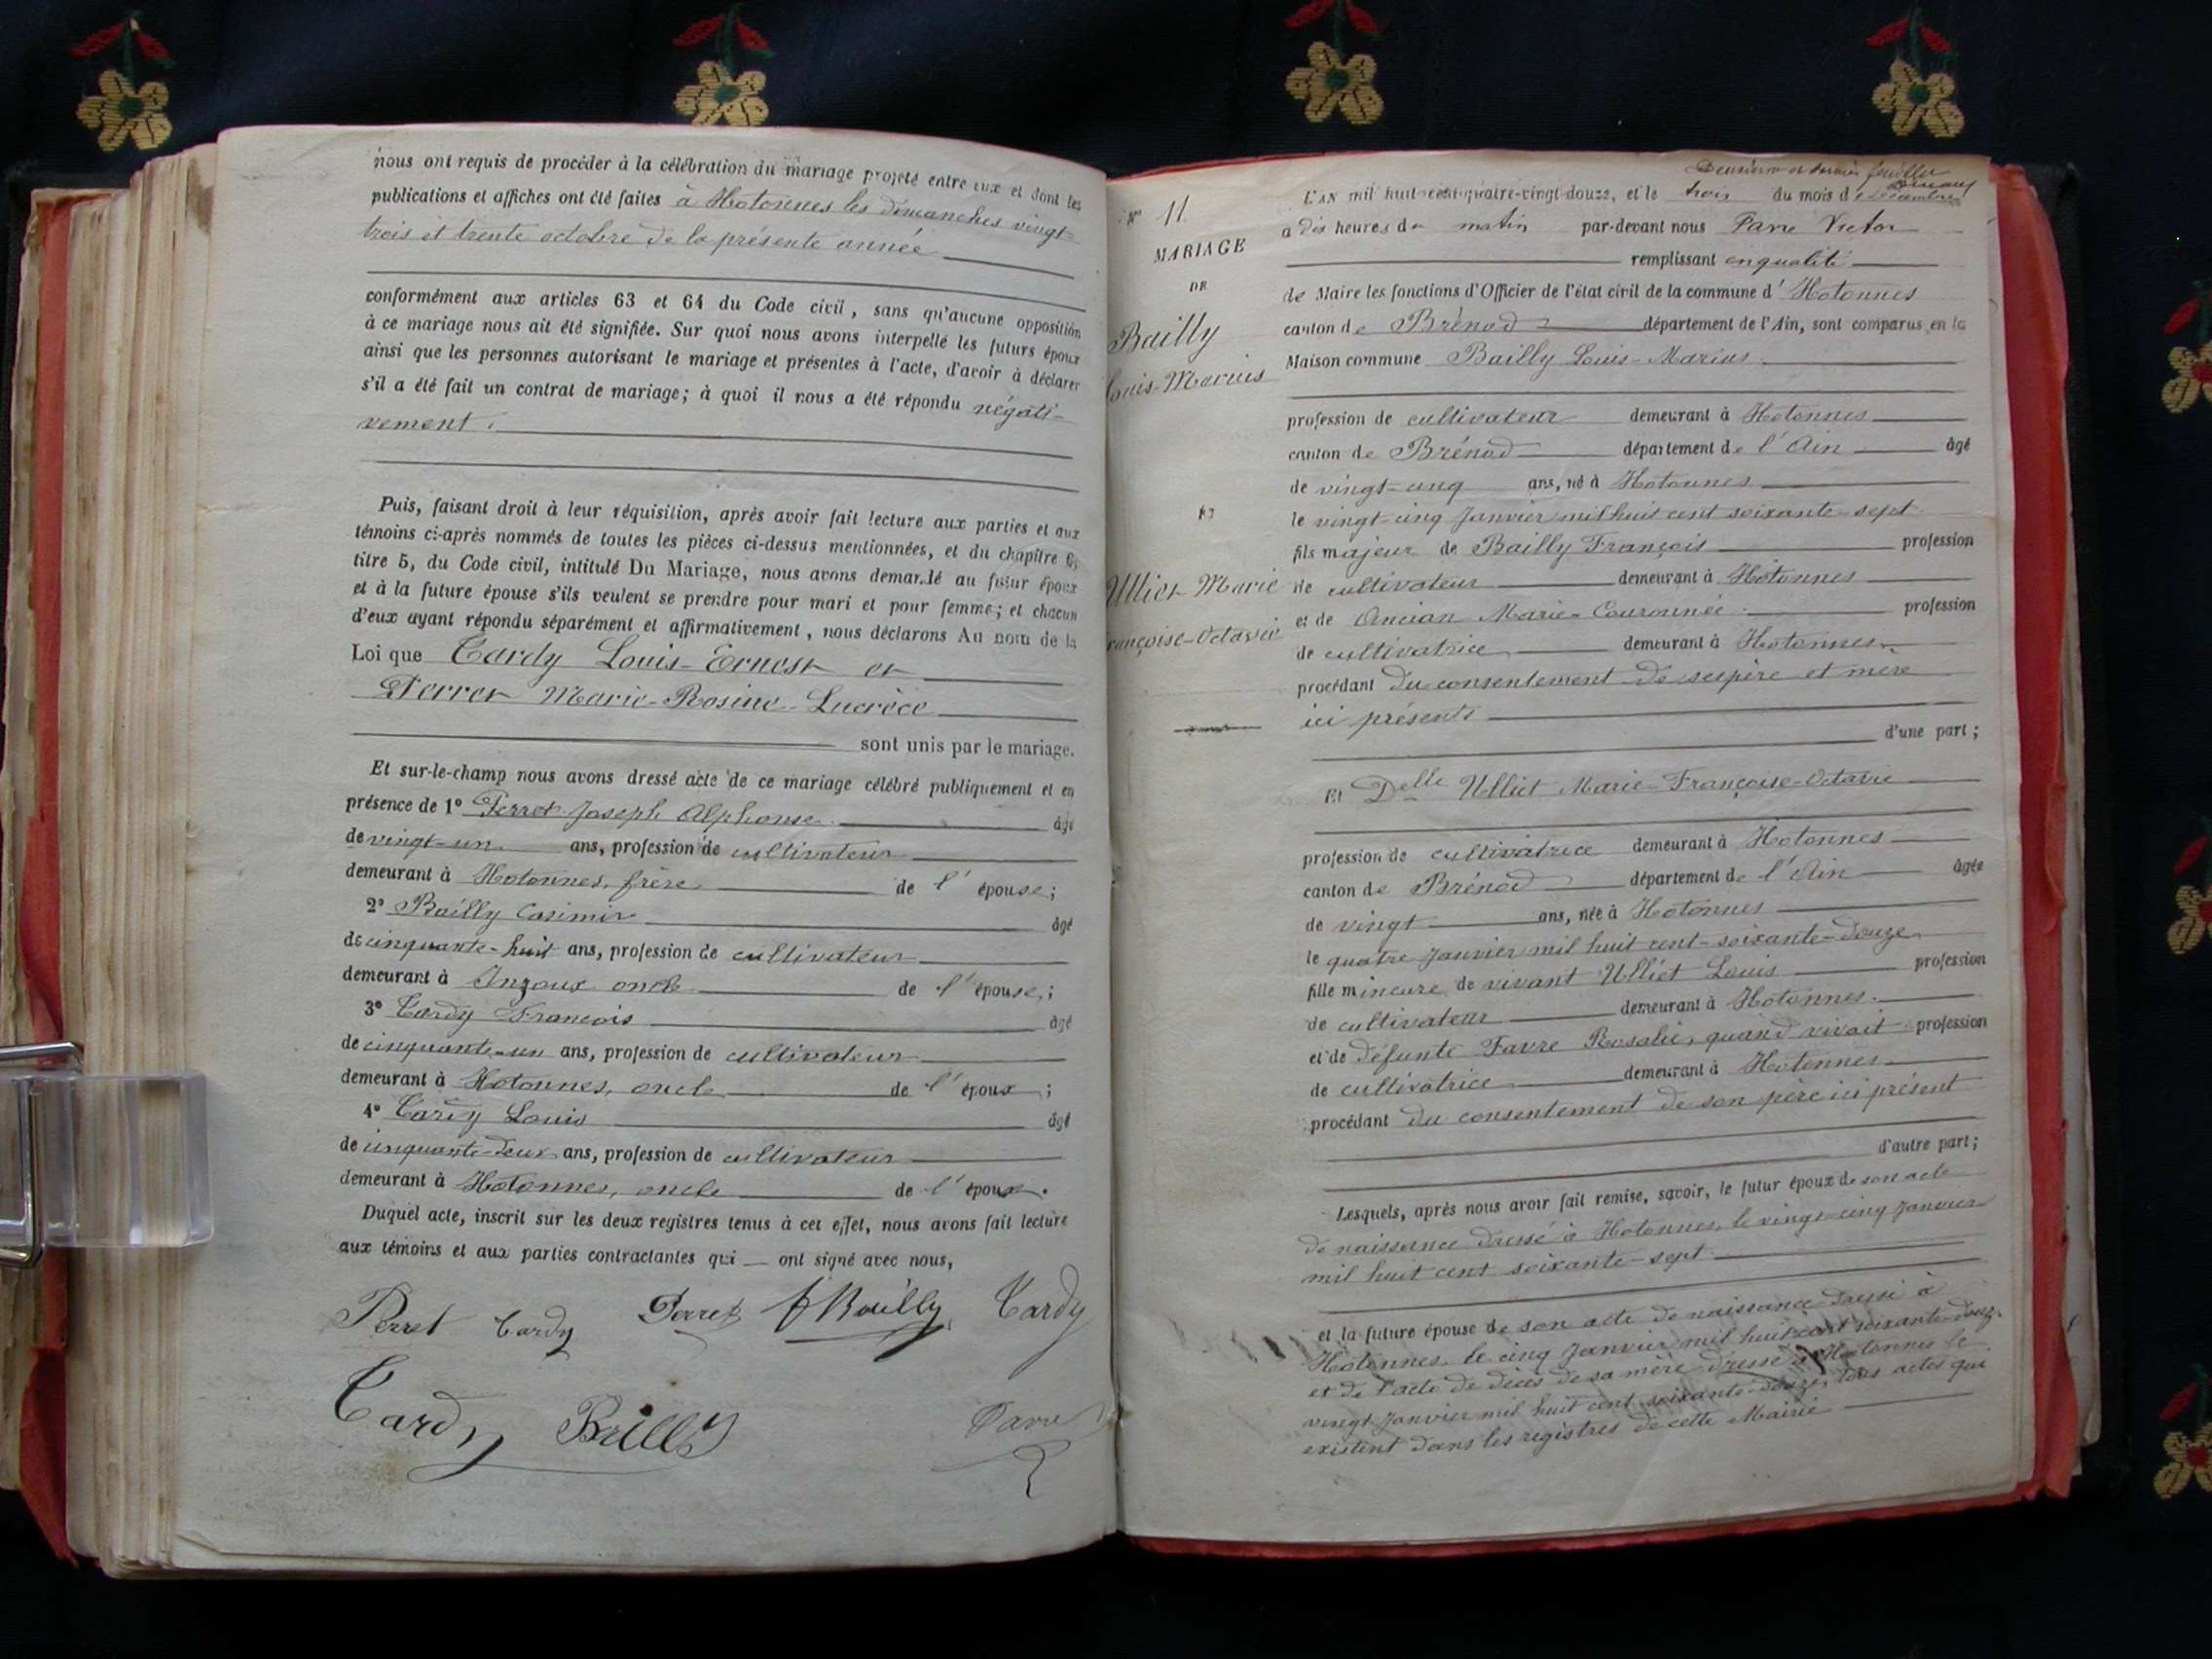 nous ont requis de procéder à la célébration du mariage projeté entre eux et dont les
publications et affiches ont été faites à Hotonnes les dimanches vingt-
trois et trente octobre de la présente année
conformément aux articles 63 et 64 du Code civil, sans qu'aucune opposition
à ce mariage nous ait été signifiée. Sur quoi nous avons interpellé les futurs époux
ainsi que les personnes autorisant le mariage et présentes à l'acte, d'avoir à déclarer
s'il a été fait un contrat de mariage; à quoi il nous a été répondu négati-
vement.
Puis, faisant droit à leur réquisition, après avoir fait lecture aux parties et aux
témoins ci-après nommés de toutes les pièces ci-dessus mentionnées, et du chapitre 6,
titre 5, du Code civil, intitulé Du Mariage, nous avons demandé au futur époux
et à la future épouse s'ils veulent se prendre pour mari et pour femme; et chacun
d'eux ayant répondu séparément et affirmativement, nous déclarons Au nom de la
Loi que Tardy Louis-Ernest et
Perret Marie-Rosine-Lucrèce
sont unis par le mariage.
Et sur-le-champ nous avons dressé acte de ce mariage célébré publiquement et en
présence de 1° Perret Joseph Alphonse âgé
de vingt-un ans, profession de cultivateur
demeurant à Hotonnes, frère de l'épouse;
2° Bailly Casimir âgé
de cinquante-huit ans, profession de cultivateur
demeurant à Injoux oncle de l'épouse;
3° Tardy François âgé
de cinquante-un ans, profession de cultivateur
demeurant à Hotonnes, oncle de l'époux;
4° Tardy Louis âgé
de cinquante-deux ans, profession de cultivateur
demeurant à Hotonnes, oncle de l'époux.
Duquel acte, inscrit sur les deux registres tenus à cet effet, nous avons fait lecture
aux témoins et aux parties contractantes qui ont signé avec nous,
Perret Tardy Perret Bailly Tardy
Tardy Bailly Favre
Deuxième et dernier feuillet
N° 11
MARIAGE
DE
Bailly
Louis-Marius
ET
Ulliet Marie
Françoise-Octavie
L'AN mil huit-cent-quatre-vingt-douze, et le trois du mois de décembre
à dix heures du matin par-devant nous Favre Victor
remplissant en qualité
de Maire les fonctions d'Officier de l'état civil de la commune d'Hotonnes
canton de Brénod département de l'Ain, sont comparus en la
Maison commune Bailly Louis-Marius
profession de cultivateur demeurant à Hotonnes
canton de Brénod département de l'Ain âgé
de vingt-cinq ans, né à Hotonnes
le vingt-cinq Janvier mil huit cent soixante-sept
fils majeur de Bailly François profession
de cultivateur demeurant à Hotonnes
et de Ancian Marie-Couronnée profession
de cultivatrice demeurant à Hotonnes
procédant du consentement de ses père et mère
ici présents
d'une part;
Et Delle Ulliet Marie-Françoise-Octavie
profession de cultivatrice demeurant à Hotonnes
canton de Brénod département de l'Ain âgée
de vingt ans, née à Hotonnes
le quatre Janvier mil huit cent-soixante-douze
fille mineure de vivant Ulliet Louis profession
de cultivateur demeurant à Hotonnes
et de défunte Favre Rosalie, quand vivait profession
de cultivatrice demeurant à Hotonnes
procédant du consentement de son père ici présent
d'autre part;
Lesquels, après nous avoir fait remise, savoir, le futur époux de son acte
de naissance dressé à Hotonnes, le vingt-cinq Janvier
mil huit cent soixante-sept
et la future épouse de son acte de naissance dressé à
Hotonnes le cinq Janvier mil huit cent soixante-douze
et de l'acte de décès de sa mère dressé à Hotonnes le
vingt Janvier mil huit cent soixante-douze, tous actes qui
existent dans les registres de cette Mairie